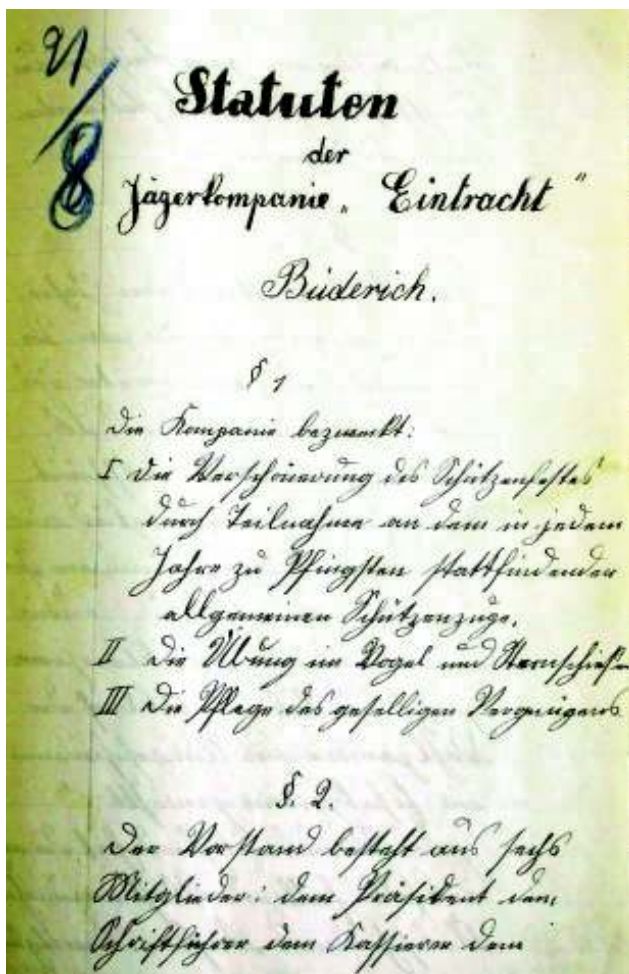 91/8
Statuten
der
Jägerkompanie „Eintracht"
Büderich.
§ 1
Die Kompanie bezweckt:
I Die Verschönerung des Schützenfestes
durch Teilnahme an dem in jedem
Jahre zu Pfingsten stattfindenden
allgemeinen Schützenzuge.
II Die Übung im Vogel und Sternschießen
III Die Pflege des geselligen Vergnügens
§. 2.
Der Vorstand besteht aus sechs
Mitglieder: dem Präsident dem
Schriftführer dem Kassierer dem